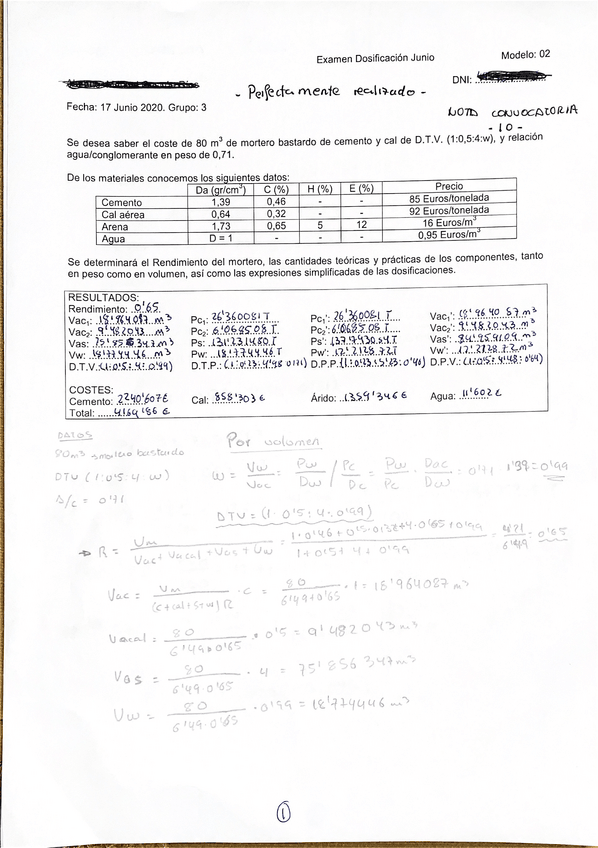 Examen Dosificación Junio
Modelo: 02
DNI:
- Perfectamente realizado -
Fecha: 17 Junio 2020. Grupo: 3
NOTA CONVOCATORIA
- 10 -
Se desea saber el coste de 80 m³ de mortero bastardo de cemento y cal de D.T.V. (1:0,5:4:w), y relación
agua/conglomerante en peso de 0,71.
De los materiales conocemos los siguientes datos:
Da (gr/cm³) C (%) H (%) E (%) Precio
Cemento 1,39 0,46 - - 85 Euros/tonelada
Cal aérea 0,64 0,32 - - 92 Euros/tonelada
Arena 1,73 0,65 5 12 16 Euros/m³
Agua D = 1 0,95 Euros/m³
Se determinará el Rendimiento del mortero, las cantidades teóricas y prácticas de los componentes, tanto
en peso como en volumen, así como las expresiones simplificadas de las dosificaciones.
RESULTADOS:
Rendimiento: 0'65
Vac₁: 18'964087 m³ Pc₁: 26'360081 T Pc₁': 26'360081 T Vac₁':
Vac₂: 9'482043 m³ Pc₂: 6'068508 T Pc₂': 6'068508 T Vac₂': 9'482043 m³
Vas: Ps: 131'231480 T Ps': Vas':
Vw: 18'774446 m³ Pw: 18'774446 T Pw': Vw':
D.T.V.: (1:0'5:4:0'99) D.T.P.: D.P.P.: D.P.V.:
COSTES:
Cemento: 2240'607 € Cal: 558'303 € Árido: 1359'346 € Agua: 11'602 €
Total: 4169'86 €
DATOS
80 m³ mortero bastardo
DTV (1:0'5:4:w)
A/c = 0'71
Por volumen
W = Vw/Vac = Pw/Dw / Pc/Dc = Pw/Pc · Dac/Dw = 0'71 · 1'39 = 0'99
DTV = (1:0'5:4:0'99)
→ R = Vm / Vac + Vacal + Vas + Vw = 1·0'46 + 0'5·0'32 + 4·0'65 + 0'99 / 1 + 0'5 + 4 + 0'99 = 4'21 / 6'49 = 0'65
Vac = Vm / (c+cal+s+w) R · c = 80 / 6'49·0'65 · 1 = 18'964087 m³
Vacal = 80 / 6'49·0'65 · 0'5 = 9'482043 m³
Vas = 80 / 6'49·0'65 · 4 = 75'856347 m³
Vw = 80 / 6'49·0'65 · 0'99 = 18'774446 m³
1